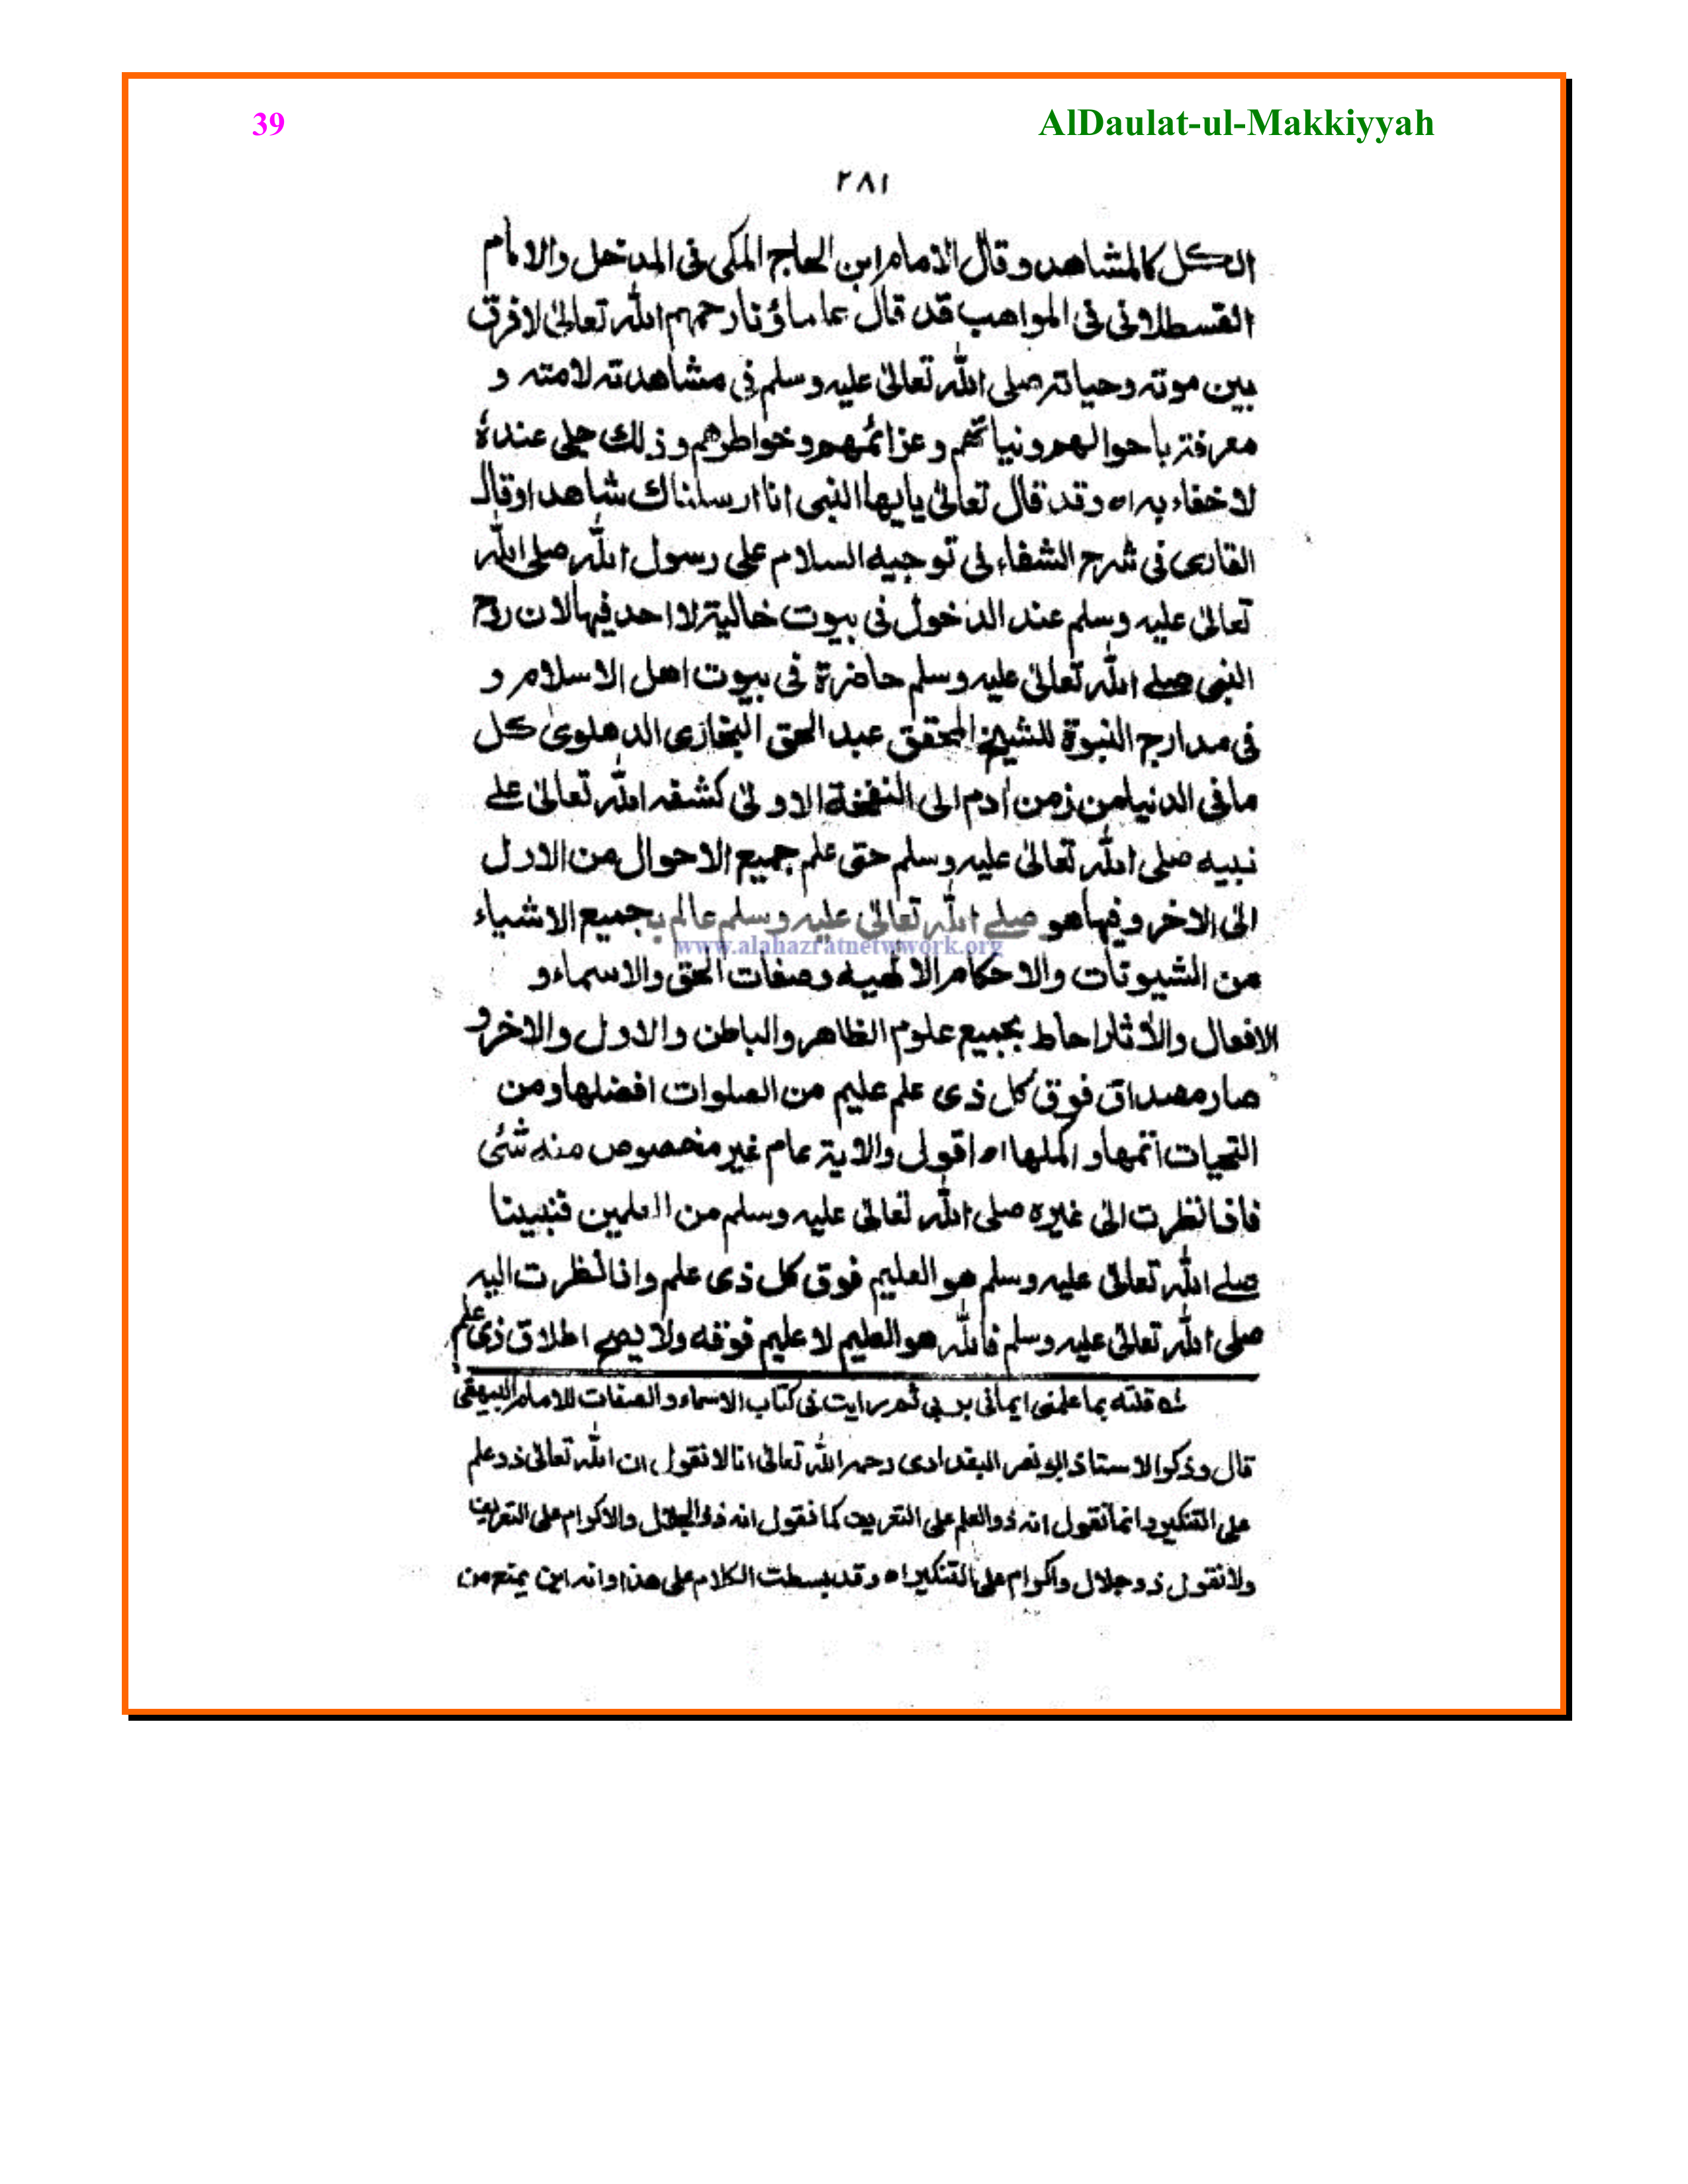 39 AlDaulat-ul-Makkiyyah
٢٨١
الكل كالمشاهد وقال الامام ابن الحاج المكى فى المدخل والامام
القسطلانى فى المواهب قد قال علماؤنا رحمهم الله تعالىٰ لافرق
بين موته وحياته صلى الله تعالىٰ عليه وسلم فى مشاهدته لامته و
معرفته باحوالهم ونياتهم وعزائمهم وخواطرهم وذلك جلى عندهٗ
لاخفاء به اه وقد قال تعالىٰ يايها النبى انا ارسلناك شاهدا وقال
القارى فى شرح الشفاء فى توجيه السلام على رسول الله صلى الله
تعالىٰ عليه وسلم عند الدخول فى بيوت خالية لا احد فيها لان روح
النبى صلے الله تعالىٰ عليه وسلم حاضرة فى بيوت اهل الاسلام و
فى مدارج النبوة للشيخ المحقق عبد الحق البخارى الدهلوى كل
مافى الدنيا من زمن اٰدم الى النفخة الاولىٰ كشفه الله تعالىٰ علے
نبيه صلى الله تعالىٰ عليه وسلم حتى علم جميع الاحوال من الاول
الى الاخر وفيها هو صلے الله تعالىٰ عليه وسلم عالم بجميع الاشياء
www.alahazratnetwork.org
من الشيونات والاحكام الالٰهيه وصفات الحق والاسماء و
الافعال والاٰثار احاط بجميع علوم الظاهر والباطن والاول والاخر و
صار مصداق فوق كل ذى علم عليم من الصلوات افضلها ومن
التحيات اتمها واكملها اه اقول والاية عام غير مخصوص منه شئى
فاذا نظرت الىٰ غيره صلى الله تعالىٰ عليه وسلم من العلمين فنبينا
صلے الله تعالىٰ عليه وسلم هو العليم فوق كل ذى علم واذا نظرت اليه
صلى الله تعالىٰ عليه وسلم فالله هو العليم لا عليم فوقه ولا يصح اطلاق ذى علم
قلته بما علمنى ايمانى بربى ثم رايت فى كتاب الاسماء والصفات للامام البيهقى
قال وذكر الاستاذ ابو نصر البغدادى رحمه الله تعالىٰ انا لانقول ان الله تعالىٰ ذو علم
على التنكير وانما نقول انه ذو العلم على التعريف كما نقول انه ذو الجلال والاكرام على التعريف
ولا نقول ذو جلال واكرام على التنكير اه وقد بسطت الكلام على هذا وانه اين يمتنع من